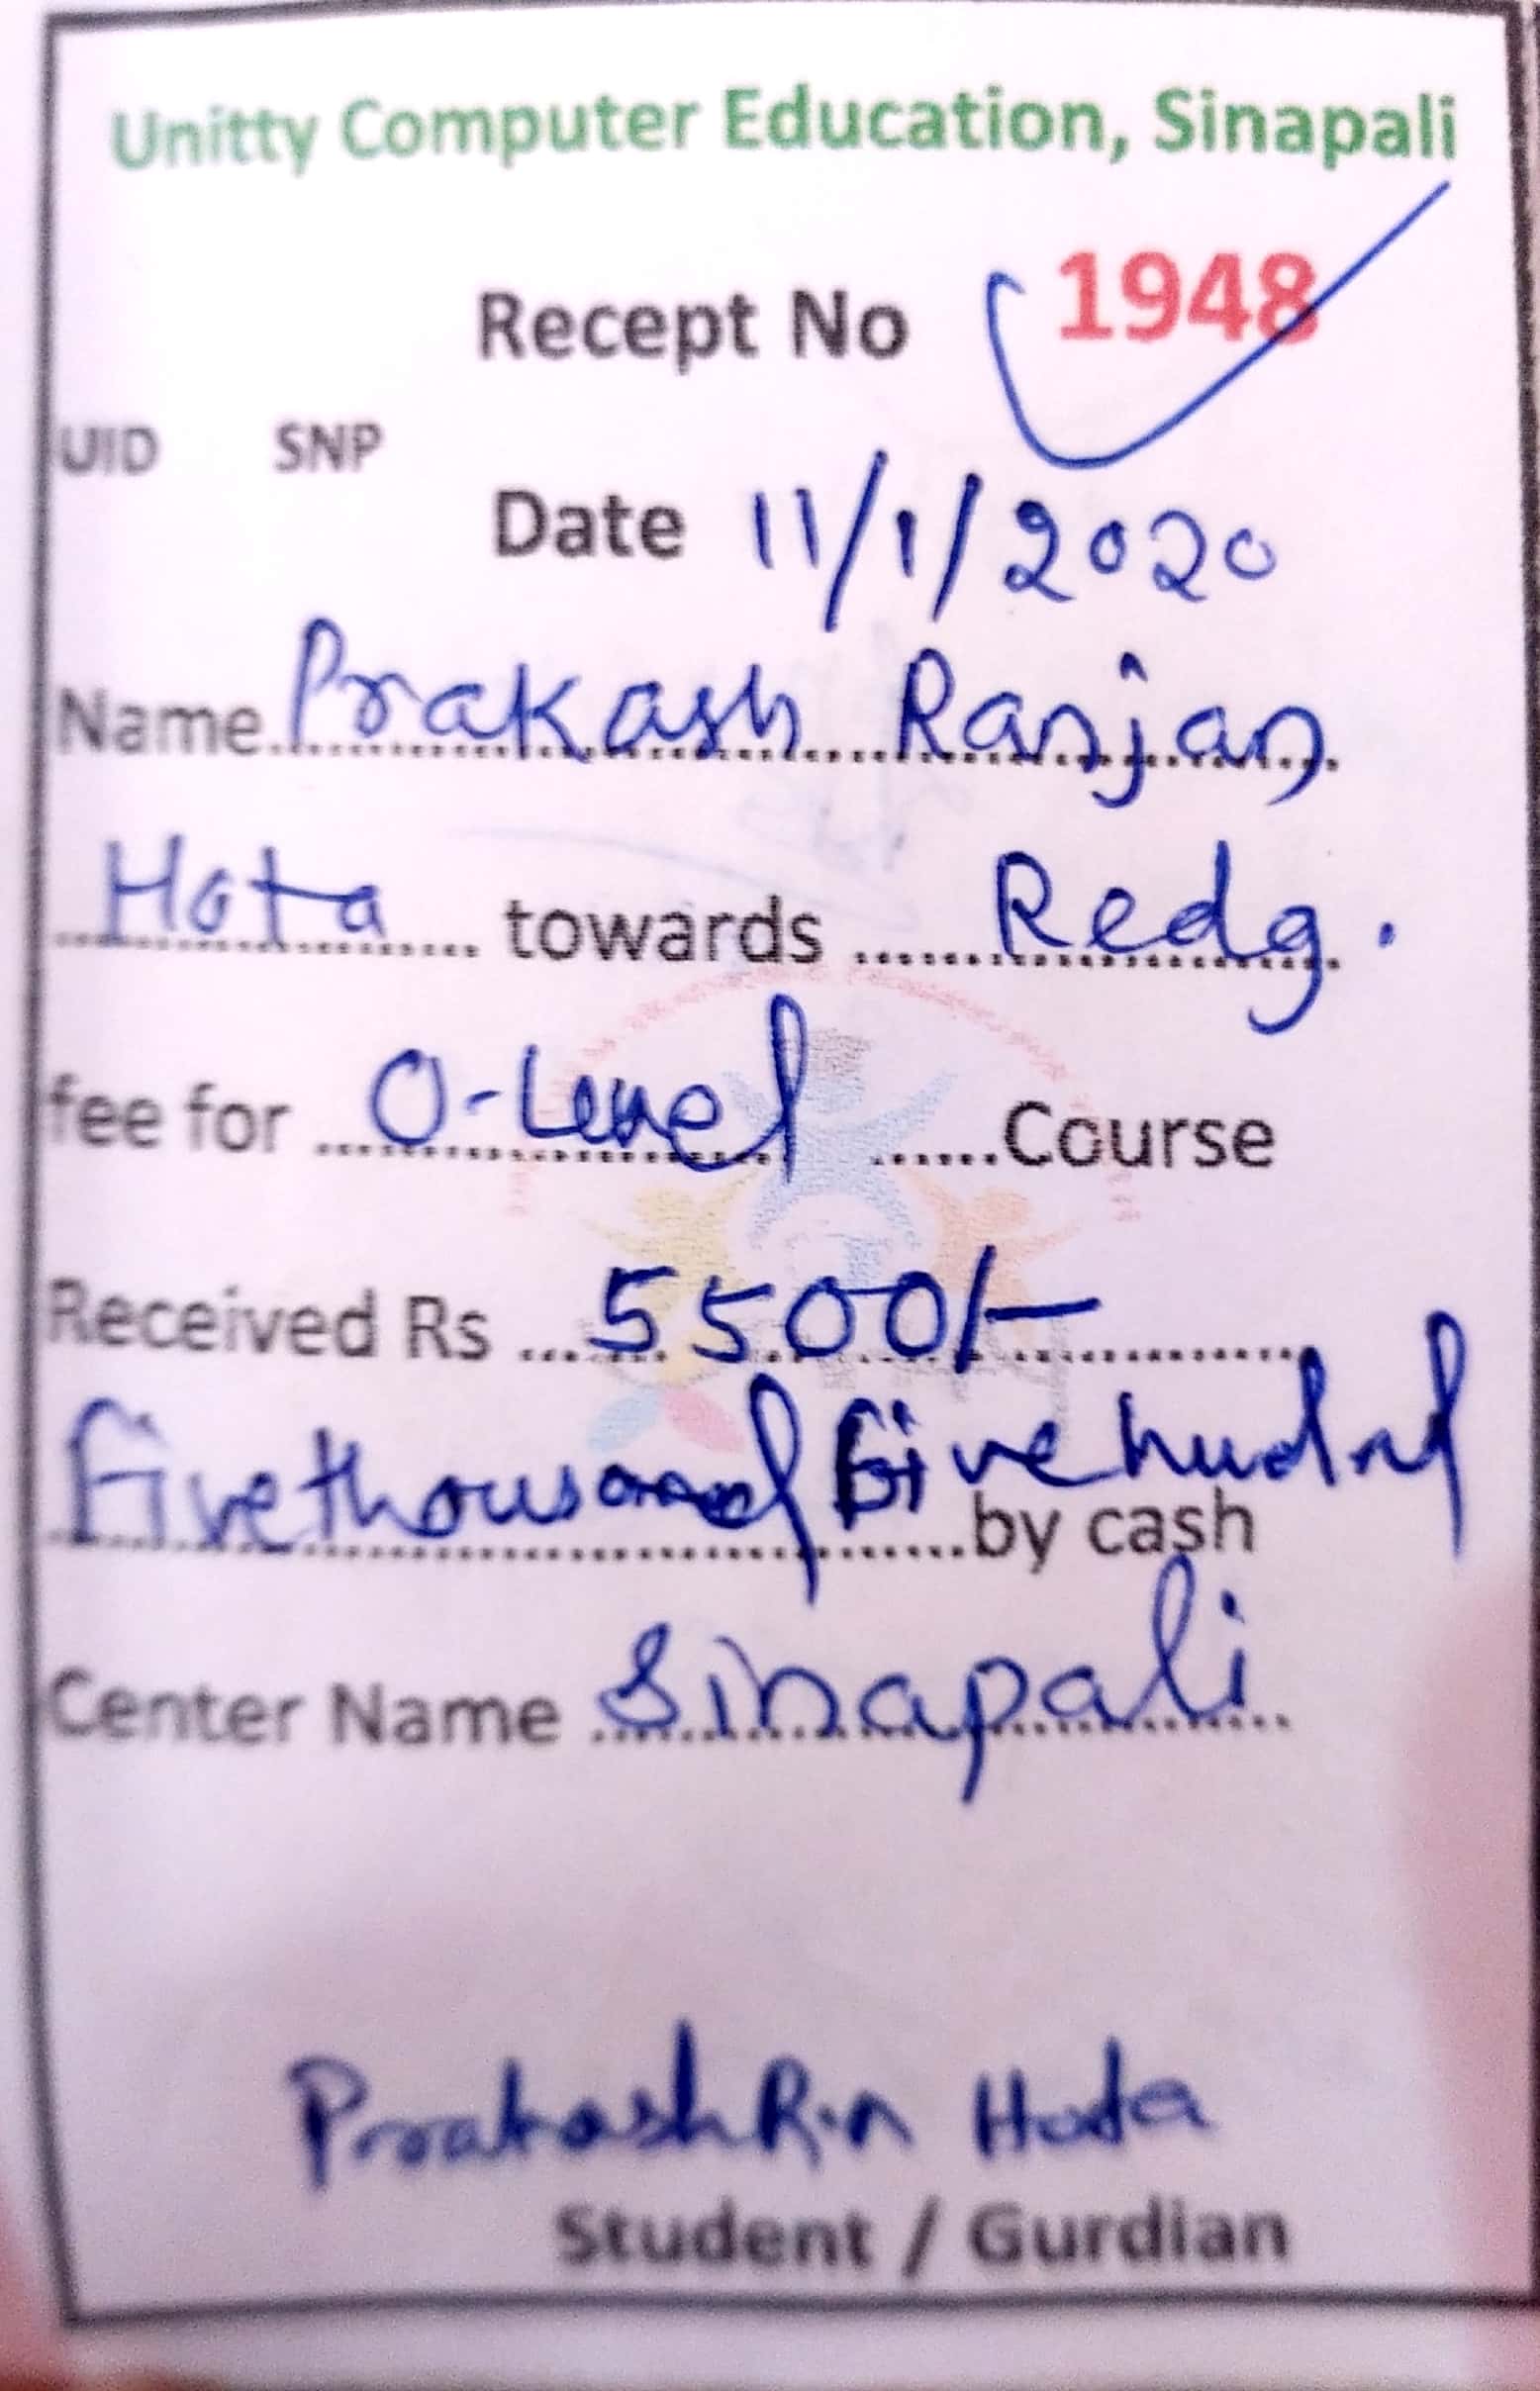 Unitty Computer Education, Sinapali
Recept No 1948
UID SNP
Date 11/1/2020
Name Prakash Ranjan
Hota towards Redg.
fee for O-Level Course
Received Rs 5500/-
Five thousand Five hudred
by cash
Center Name Sinapali
Prakash Rn Hota
Student / Gurdian